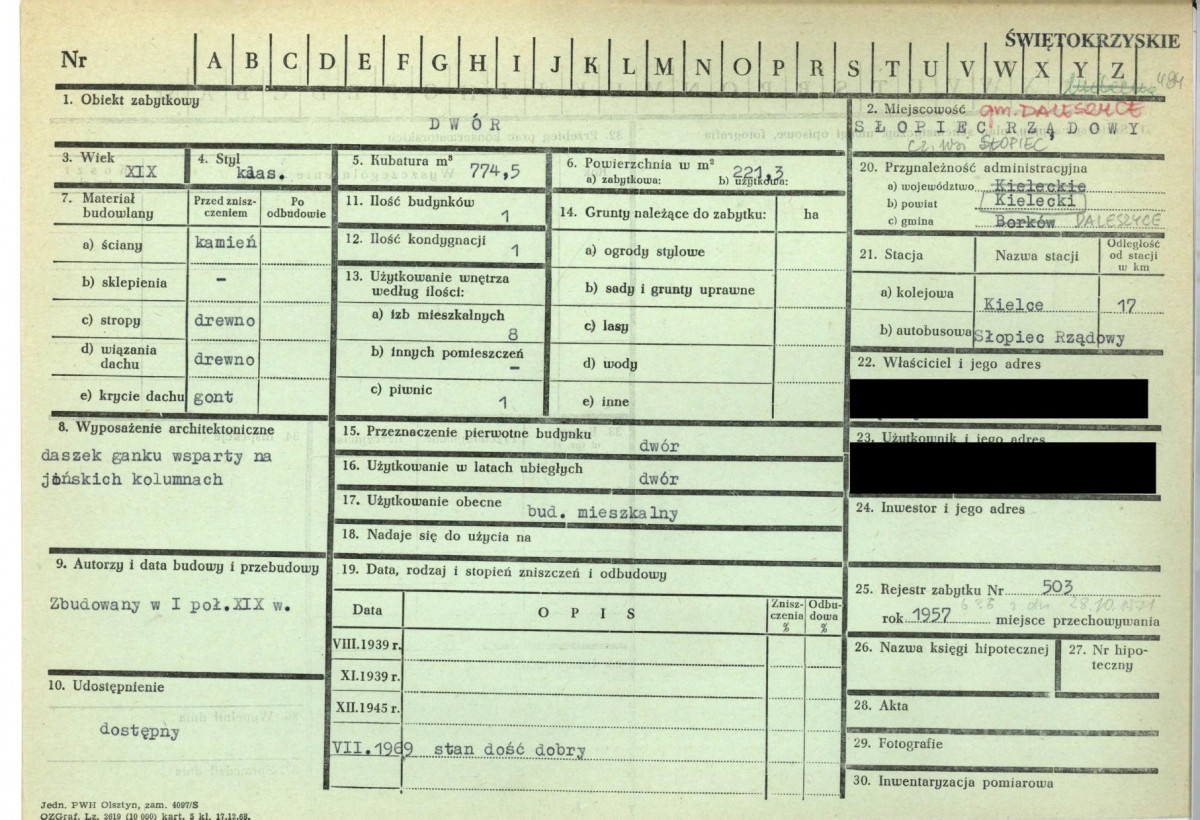 ŚWIĘTOKRZYSKIE
Nr A B C D E F G H I J K L M N O P R S T U V W X Y Z
1. Obiekt zabytkowy
DWÓR
2. Miejscowość gm. DALESZYCE
SŁOPIEC RZĄDOWY
czyli SŁOPIEC
3. Wiek
XIX
4. Styl
klas.
5. Kubatura m³ 774,5
6. Powierzchnia w m²
a) zabytkowa: b) użytkowa: 221,3
7. Materiał budowlany
Przed zniszczeniem
Po odbudowie
a) ściany kamień
b) sklepienia –
c) stropy drewno
d) wiązania dachu drewno
e) krycie dachu gont
8. Wyposażenie architektoniczne
daszek ganku wsparty na
jońskich kolumnach
9. Autorzy i data budowy i przebudowy
Zbudowany w I poł.XIX w.
10. Udostępnienie
dostępny
11. Ilość budynków 1
12. Ilość kondygnacji 1
13. Użytkowanie wnętrza
według ilości:
a) izb mieszkalnych 8
b) innych pomieszczeń –
c) piwnic 1
14. Grunty należące do zabytku: ha
a) ogrody stylowe
b) sady i grunty uprawne
c) lasy
d) wody
e) inne
15. Przeznaczenie pierwotne budynku dwór
16. Użytkowanie w latach ubiegłych dwór
17. Użytkowanie obecne bud. mieszkalny
18. Nadaje się do użycia na
19. Data, rodzaj i stopień zniszczeń i odbudowy
Data OPIS Zniszczenia % Odbudowa %
VIII.1939 r.
XI.1939 r.
XII.1945 r.
VII.1969 stan dość dobry
20. Przynależność administracyjna
a) województwo Kieleckie
b) powiat Kielecki
c) gmina Borków DALESZYCE
21. Stacja Nazwa stacji Odległość od stacji w km
a) kolejowa Kielce 17
b) autobusowa Słopiec Rządowy
22. Właściciel i jego adres
23. Użytkownik i jego adres
24. Inwestor i jego adres
25. Rejestr zabytku Nr 503
rok 1957 miejsce przechowywania
26. Nazwa księgi hipotecznej
27. Nr hipoteczny
28. Akta
29. Fotografie
30. Inwentaryzacja pomiarowa
Jedn. PWH Olsztyn, zam. 4097/S
OZGraf. Lz. 2619 (10 000) kart. 5 kl. 17.12.68.